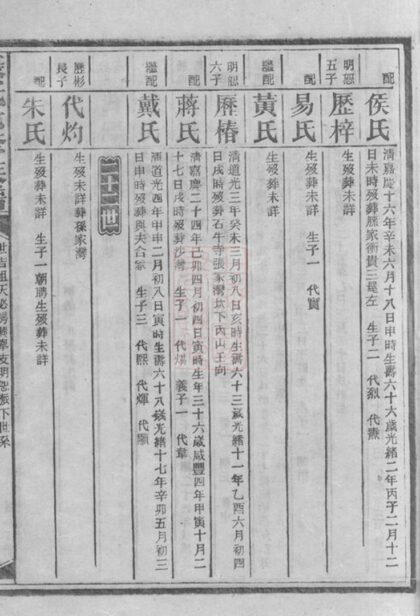 配
侯氏
清嘉慶十六年辛未六月十八日申時生壽六十六歲光緒二年丙子二月十二
日未時歿葬歷家衝貴三房左 生子二 代烈 代燾
明恕
五子
歷梓
生歿葬未詳
配
易氏
生歿葬未詳 生子一 代寅
繼配
黃氏
生歿葬未詳
明恕
六子
歷椿
清道光三年癸未三月初八日亥時生壽六十三歲光緒十一年乙酉六月初四
日戌時歿葬石牛寺張家灣坎下丙山壬向
配
蔣氏
清嘉慶二十四年己卯四月初四日寅時生年三十六歲咸豐四年甲寅十月二
十七日戌時歿葬沙灣 生子一 義子一 代韋
繼配
戴氏
清道光四年甲申二月初八日寅時生壽六十八歲光緒十七年辛卯五月初三
日申時歿葬與夫合冢 生子三 代熙 代煇 代顯
二十二世
歷彬
長子
代灼
生歿未詳葬孫家灣
配
朱氏
生歿葬未詳 生子一 朝勝生歿葬未詳